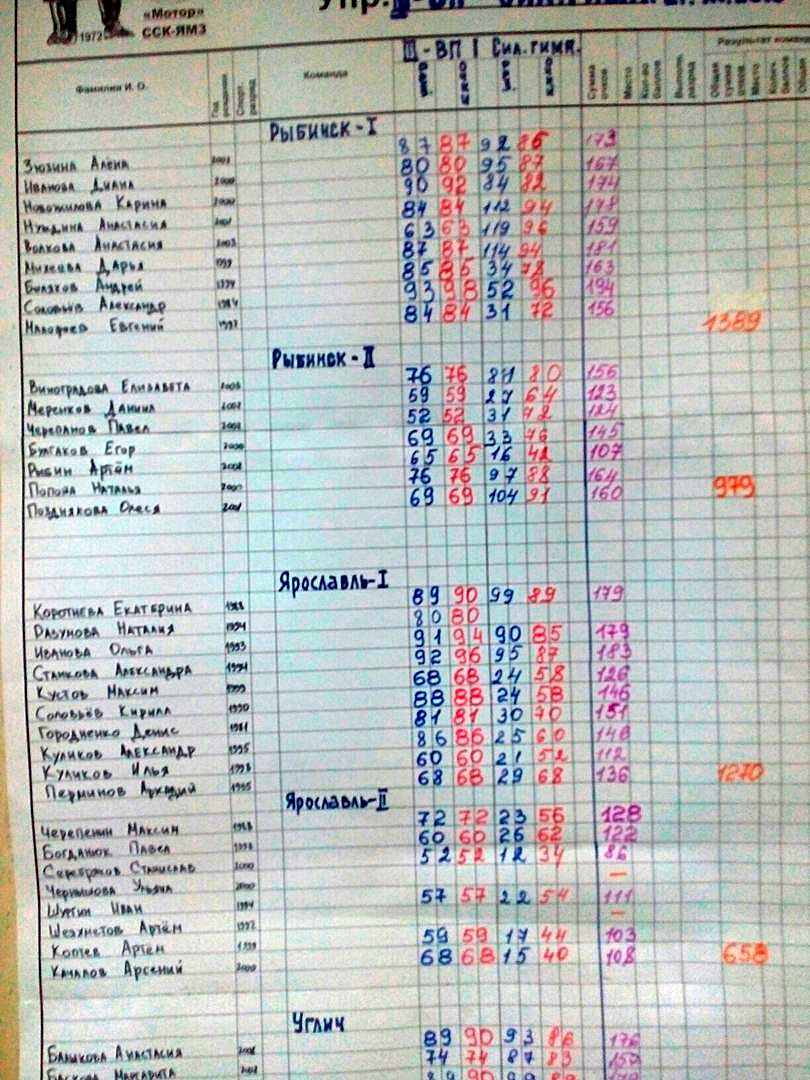 Упр. III-ВП
«Мотор»
1972 ССК-ЯМЗ
III - ВП | Сил. гимн.
Фамилия И. О. Год рождения Спорт. разряд Команда Сумма очков Место Кол-во баллов Выполн. разряд Общая сумма очков Место
Рыбинск-I
Зюзина Алёна 87 87 92 86 173
Иванова Диана 2000 80 80 95 87 167
Новожилова Карина 2000 90 92 84 82 174
Нуждина Анастасия 84 84 112 94 178
Волкова Анастасия 63 63 119 96 159
Михеева Дарья 87 87 114 94 181
Андрей 85 85 34 78 163
Соловьёв Александр 93 98 52 96 194
Евгений 84 84 31 72 156 1389
Рыбинск-II
Виноградова Елизавета 76 76 81 80 156
Меренков Данила 59 59 27 64 123
Черепанов Павел 52 52 31 72 124
Булгаков Егор 69 69 33 76 145
Рыбин Артём 65 65 16 42 107
Наталья 76 76 97 88 164
Позднякова Олеся 69 69 104 91 160 979
Ярославль-I
Коротнева Екатерина 89 90 99 89 179
Наталия 80 80
Иванова Ольга 1993 91 94 90 85 179
Станкова Александра 92 96 95 87 183
Кустов Максим 68 68 24 58 126
Соловьёв Кирилл 1990 88 88 24 58 146
Городненко Денис 1981 81 81 30 70 151
Куликов Александр 1995 86 86 25 60 146
Куликов Илья 60 60 21 52 112
Перминов Аркадий 1995 68 68 29 68 136 1270
Ярославль-II
Черепенин Максим 72 72 23 56 128
Богданюк Павел 60 60 26 62 122
Серебряков Станислав 2000 52 52 12 34 86
Чернышова Ульяна 2000 —
Шургин Иван 57 57 22 54 111
Артём —
Коптев Артём 1999 59 59 17 44 103
Качалов Арсений 2000 68 68 15 40 108 658
Углич
Анастасия 89 90 93 86 176
Маргарита 74 74 87 83